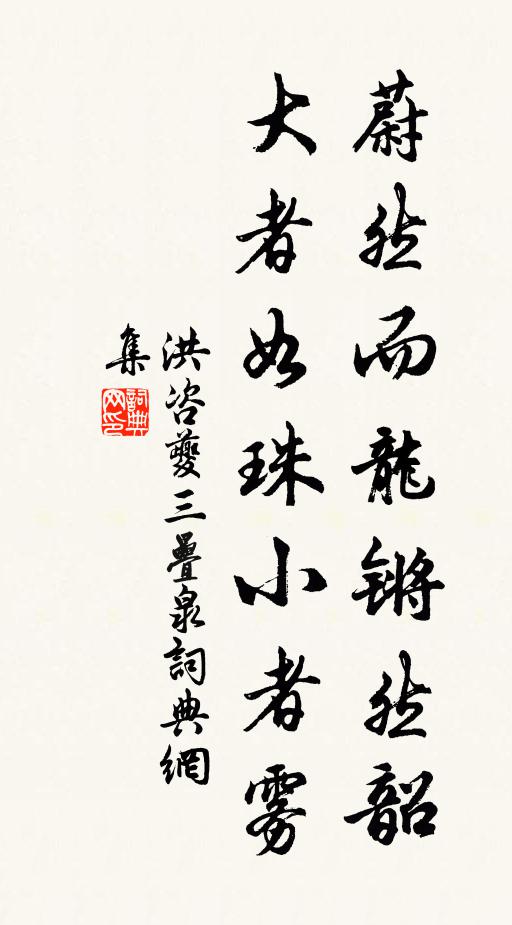 蔚然而龍鏘然韶
大者如珠小者雾
洪咨夔三疊泉詞典網
集
詞典
网印